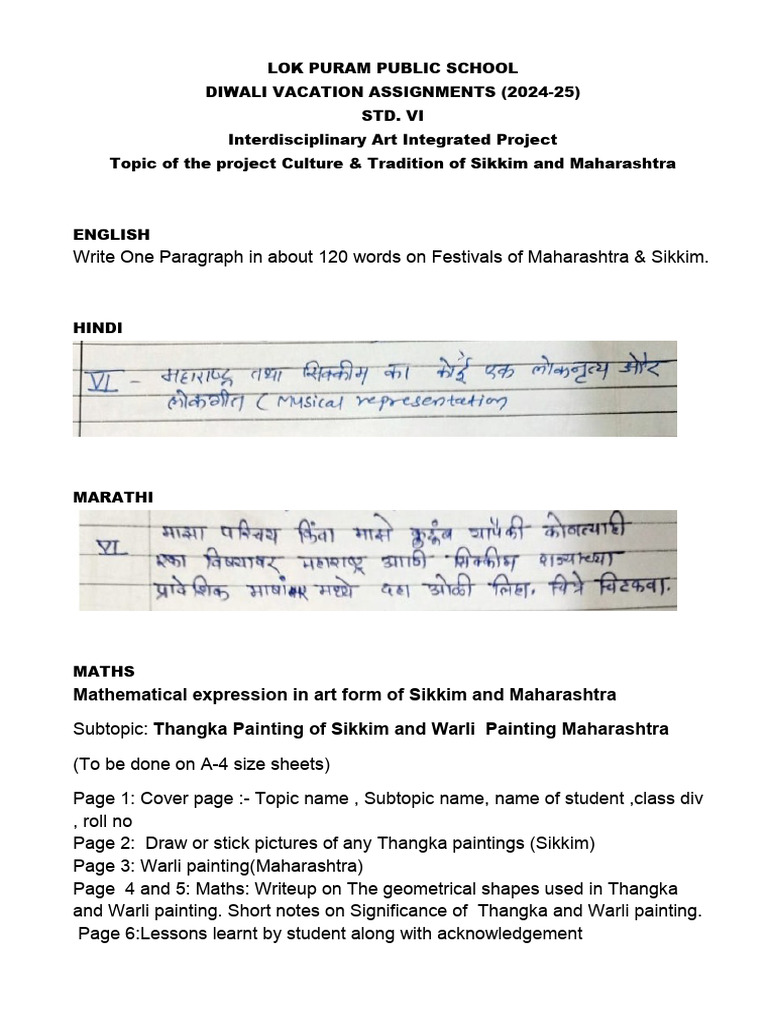 LOK PURAM PUBLIC SCHOOL
DIWALI VACATION ASSIGNMENTS (2024-25)
STD. VI
Interdisciplinary Art Integrated Project
Topic of the project Culture & Tradition of Sikkim and Maharashtra
ENGLISH
Write One Paragraph in about 120 words on Festivals of Maharashtra & Sikkim.
HINDI
VI - महाराष्ट्र तथा सिक्कीम का कोई एक लोकनृत्य और
लोकगीत ( Musical representation
MARATHI
माझा परिचय किंवा माझे कुटुंब यापैकी कोणत्याही
VI एका विषयावर महाराष्ट्र आणि सिक्कीम राज्याच्या
प्रादेशिक भाषांमध्ये दहा ओळी लिहा. चित्रे चिटकवा.
MATHS
Mathematical expression in art form of Sikkim and Maharashtra
Subtopic: Thangka Painting of Sikkim and Warli Painting Maharashtra
(To be done on A-4 size sheets)
Page 1: Cover page :- Topic name , Subtopic name, name of student ,class div
, roll no
Page 2: Draw or stick pictures of any Thangka paintings (Sikkim)
Page 3: Warli painting(Maharashtra)
Page 4 and 5: Maths: Writeup on The geometrical shapes used in Thangka
and Warli painting. Short notes on Significance of Thangka and Warli painting.
Page 6:Lessons learnt by student along with acknowledgement